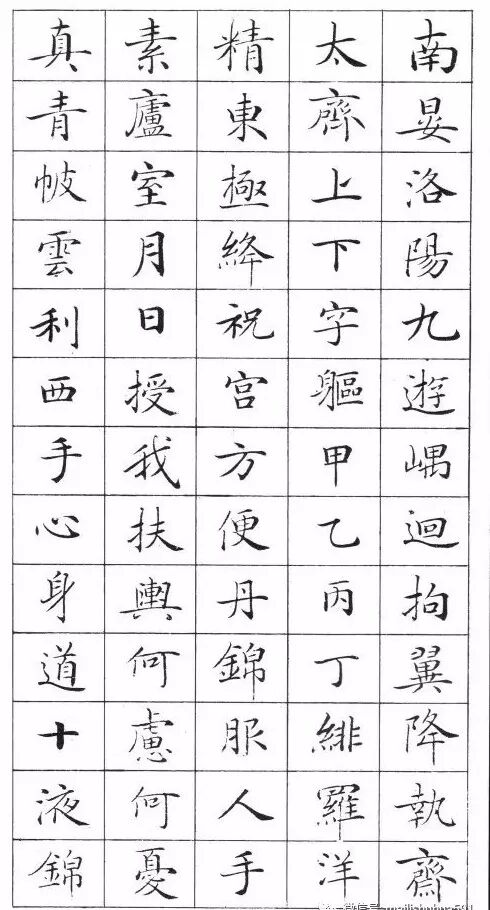 南晏洛陽九遊嵎迴拘翼降執齋
太齊上下字軀甲乙丙丁緋羅洋
精東極絳祝宮方便丹錦服人手
素廬室月日授我扶輿何慮何憂
真青帔雲利西手心身道十液錦